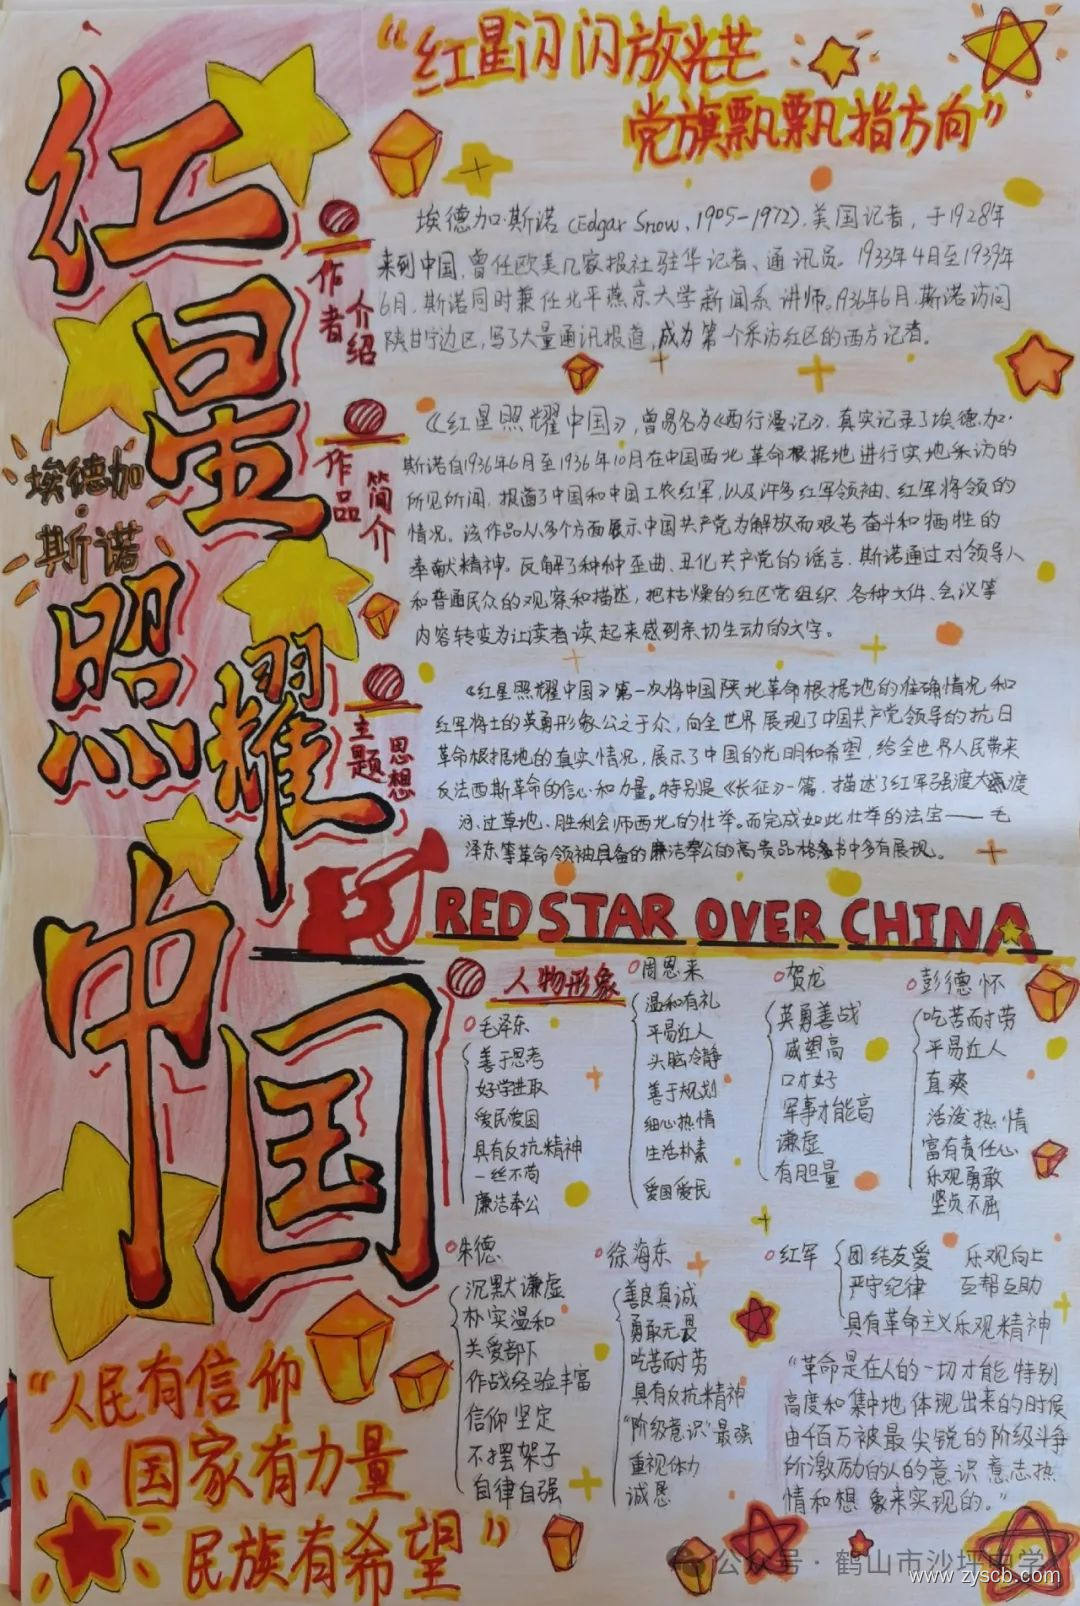 “红星闪闪放光芒
党旗飘飘指方向”
红星照耀中国
埃德加·
斯诺
作者
介绍
埃德加·斯诺（Edgar Snow，1905-1972），美国记者，于1928年
来到中国，曾任欧美几家报社驻华记者、通讯员。1933年4月至1939年
6月，斯诺同时兼任北平燕京大学新闻系讲师。1936年6月，斯诺访问
陕甘宁边区，写了大量通讯报道，成为第一个采访红区的西方记者。
作品
简介
《红星照耀中国》，曾易名为《西行漫记》，真实记录了埃德加·
斯诺自1936年6月至1936年10月在中国西北革命根据地进行实地采访的
所见所闻，报道了中国和中国工农红军，以及许多红军领袖、红军将领的
情况。该作品从多个方面展示中国共产党为解放而艰苦奋斗和牺牲的
奉献精神。反解了种种歪曲、丑化共产党的谣言，斯诺通过对领导人
和普通民众的观察和描述，把枯燥的红区党组织、各种文件、会议等
内容转变为让读者读起来感到亲切生动的文字。
主题
思想
《红星照耀中国》第一次将中国陕北革命根据地的准确情况和
红军将士的英勇形象公之于众，向全世界展现了中国共产党领导的抗日
革命根据地的真实情况，展示了中国的光明和希望，给全世界人民带来
反法西斯革命的信心和力量。特别是《长征》一篇，描述了红军强渡大渡
河、过草地、胜利会师西北的壮举。而完成如此壮举的法宝——毛
泽东等革命领袖具备的廉洁奉公的高贵品格多书中多有展现。
RED STAR OVER CHINA
人物形象
毛泽东
善于思考
好学进取
爱民爱国
具有反抗精神
一丝不苟
廉洁奉公
周恩来
温和有礼
平易近人
头脑冷静
善于规划
细心热情
生活朴素
爱国爱民
贺龙
英勇善战
威望高
口才好
军事才能高
谦虚
有胆量
彭德怀
吃苦耐劳
平易近人
直爽
活泼热情
富有责任心
乐观勇敢
坚贞不屈
朱德
沉默谦虚
朴实温和
关爱部下
作战经验丰富
信仰坚定
不摆架子
自律自强
徐海东
善良真诚
勇敢无畏
吃苦耐劳
具有反抗精神
“阶级意识”最强
重视体力
诚恳
红军
团结友爱 乐观向上
严守纪律 互帮互助
具有革命主义乐观精神
“革命是在人的一切才能特别
高度和集中地体现出来的时候
由千百万被最尖锐的阶级斗争
所激励的人的意识意志热
情和想象来实现的。”
“人民有信仰
国家有力量
民族有希望”
公众号·鹤山市沙坪中学
www.zyscb.com